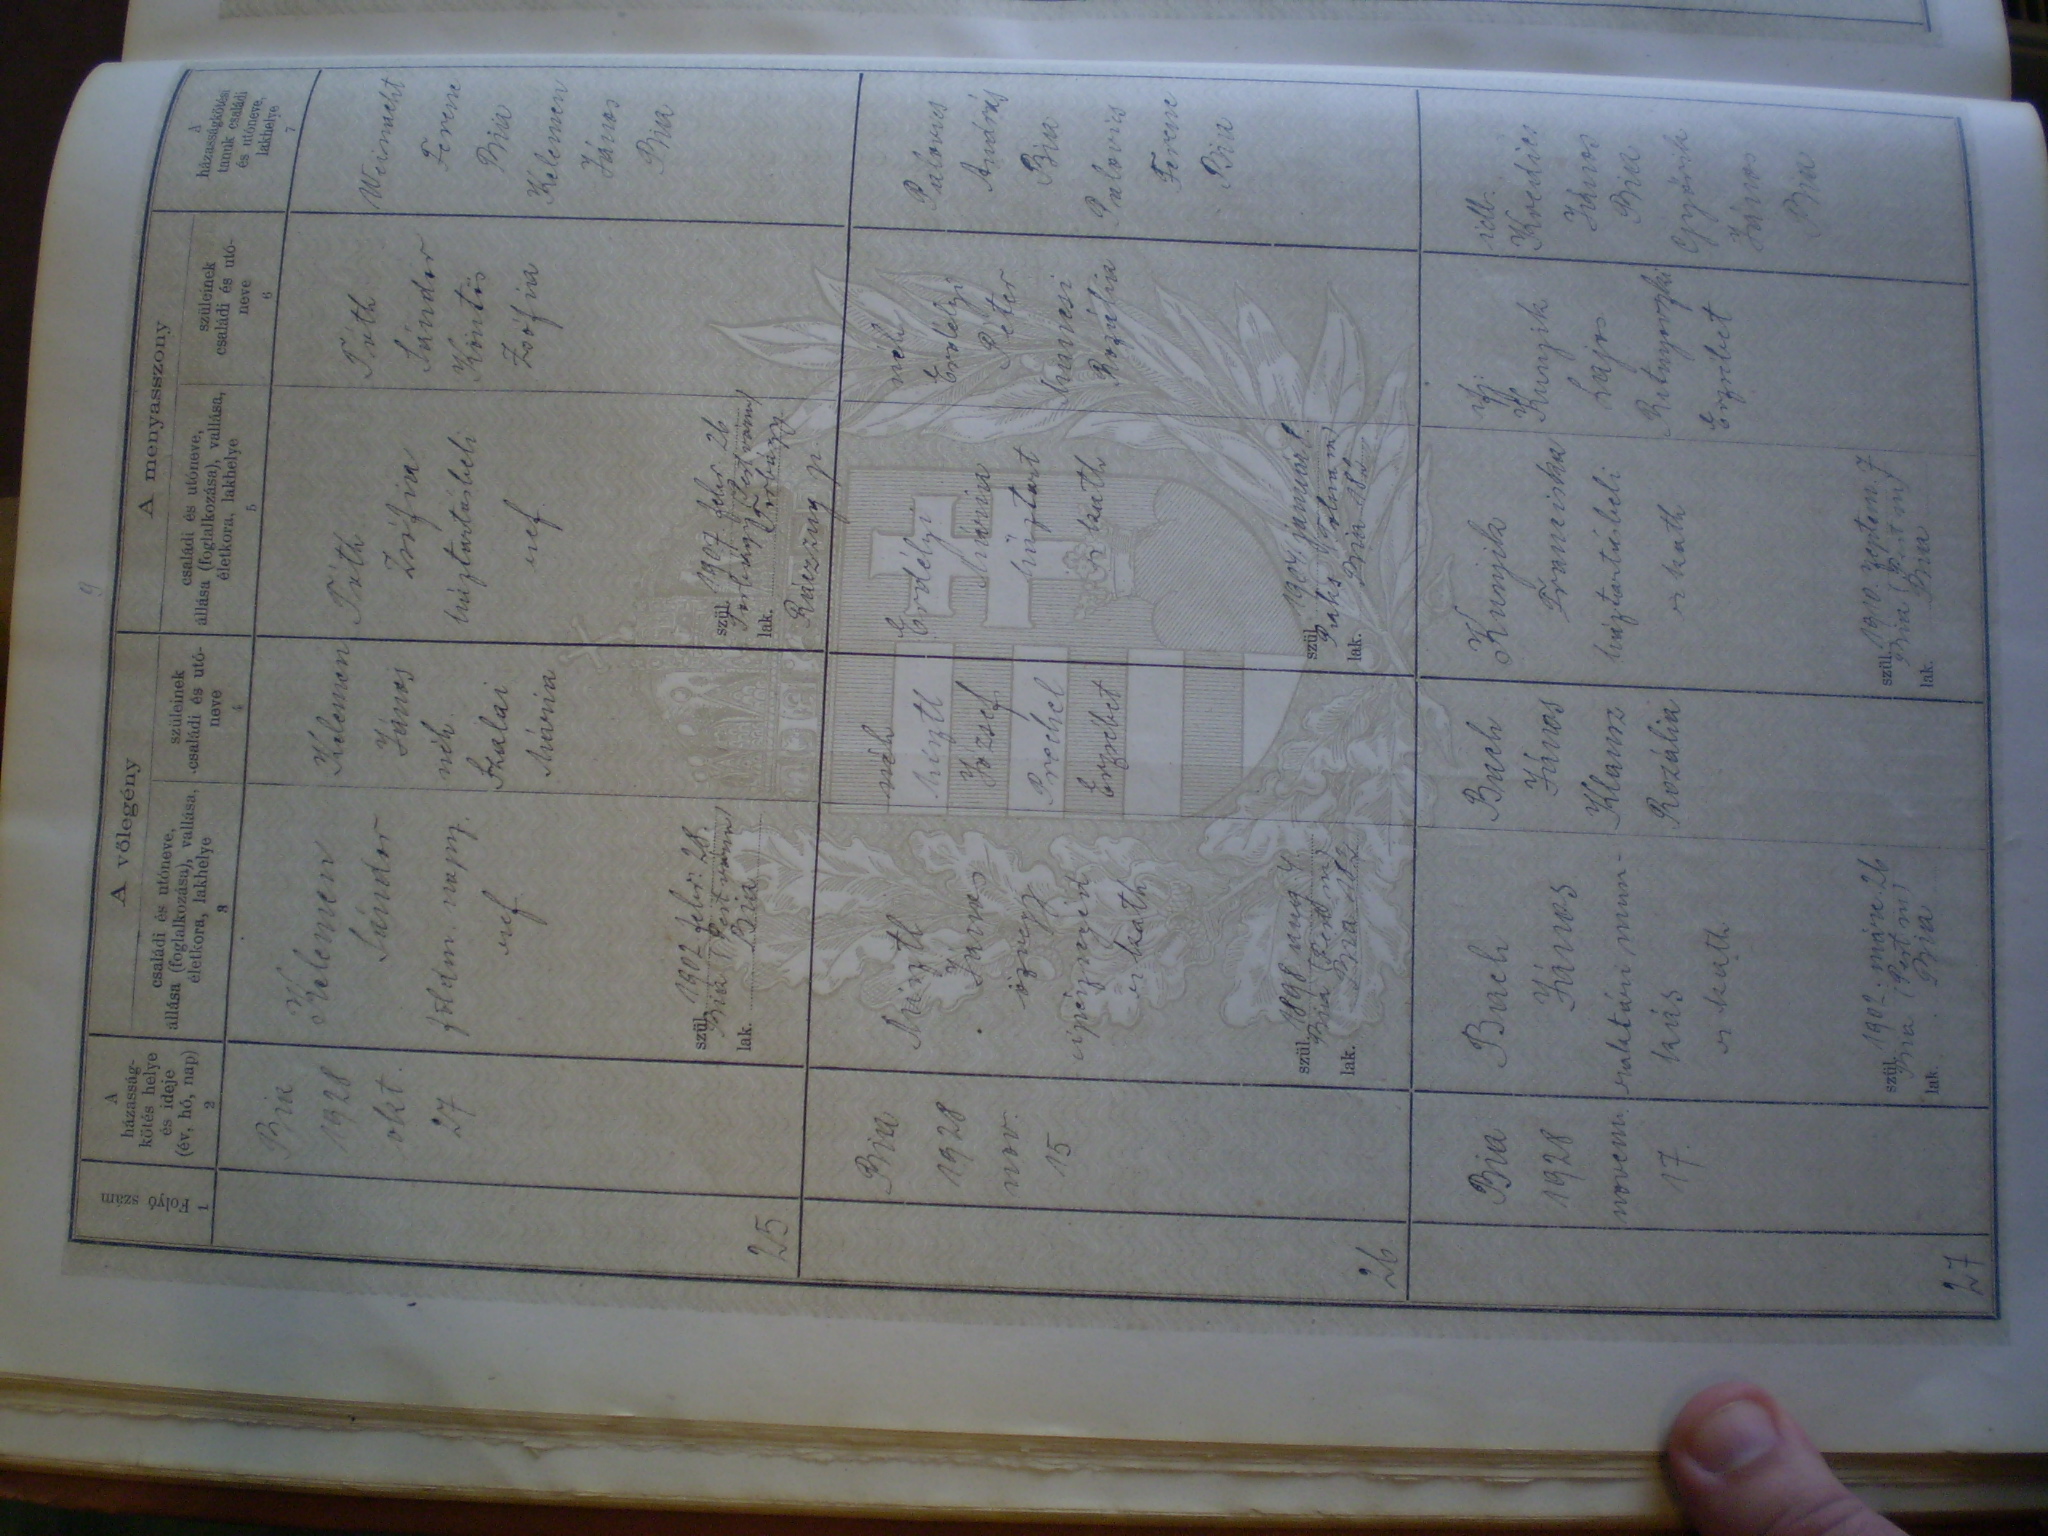 9
A vőlegény
A menyasszony
Folyó
szám
1
A
házasság-
kötés helye
és ideje
(év, hó, nap)
2
családi és utóneve,
állása (foglalkozása), vallása,
életkora, lakhelye
3
szüleinek
családi és utó-
neve
4
családi és utóneve,
állása (foglalkozása), vallása,
életkora, lakhelye
5
szüleinek
családi és utó-
neve
6
A
házasságkötési
tanuk családi
és utóneve,
lakhelye
7
25
Bia
1928
okt.
27
Kelemen
Sándor
földm. napsz.
ref
szül. 1902 febr. 28.
Bia (Pest
lak. Bia
Kelemen
János
néh.
Szalai
Mária
Tóth
Zsófia
háztartásbeli
ref
szül. 1907 febr 26
lak.
p.
Tóth
Sándor
Zsófia
Ferenc
Bia
Kelemen
János
Bia
26
Bia
1928
nov.
15
János
özvegy
r kath
szül. 1898
Bia
lak. Bia
néh
József
Erzsébet
Erdélyi
Mária
háztart
r kath
szül. 1904 január 8.
lak. Bia 188
néh
Erdélyi
Péter
Rozália
Palovics
András
Bia
Palovics
Ferenc
Bia
27
Bia
1928
novem.
17.
Bach
János
raktári mun-
kás
r kath
szül. 1902. márc. 26
Bia (Pest m)
lak. Bia
Bach
János
Klausz
Rozália
Kunzik
Franciska
háztartásbeli
r kath
szül. 1910 szeptem. 7
Bia (Pest m)
lak. Bia
ifj.
Kunzik
Lajos
Erzsébet
idb.
János
Bia
János
Bia